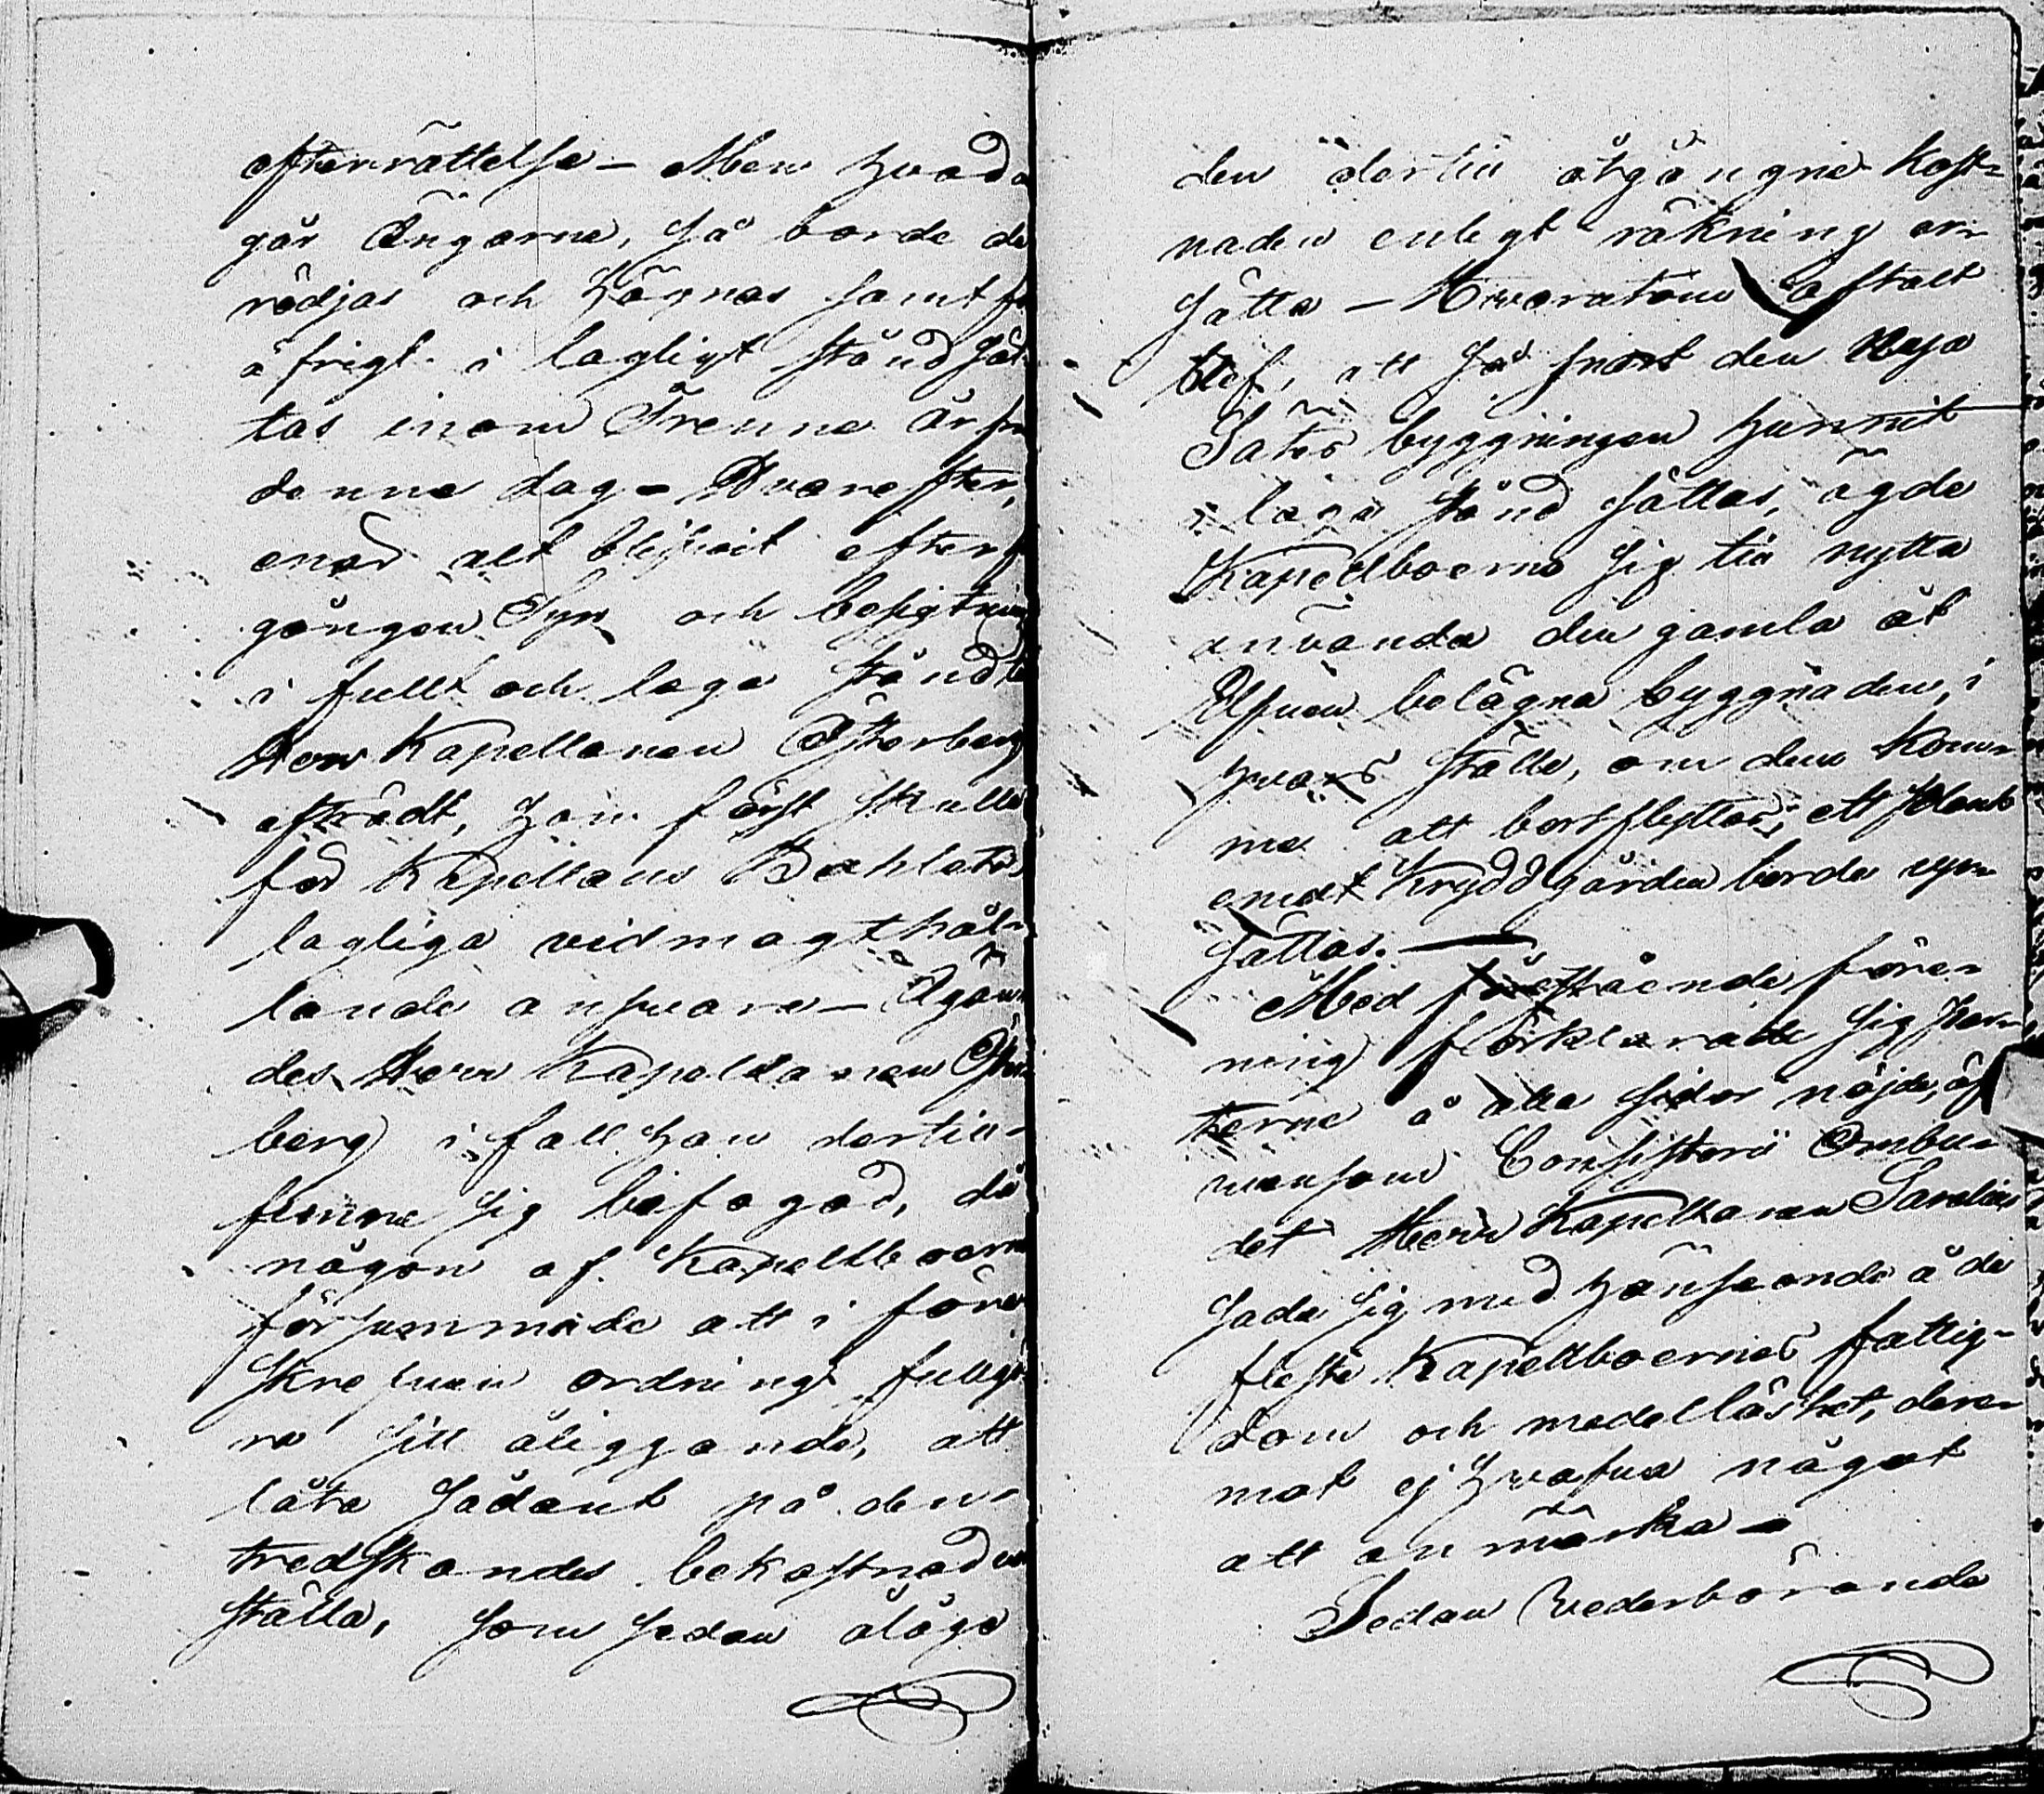 efterrättelse – Men hvad
går Ängarne, så borde de
rödjas och hägnas samt
öfrigt i lagligt stånd sät-
tas inom Trenne år
denne dag – Hvarefter,
enär alt blifvit
gången Syn och besigtning
i fullt och laga stånd
Herr Kapellanen Österberg
afträdt, han först skulle
för Kapellans Bohlets
lagliga vidmagthål-
lande ansvara – Ägan-
des Herr Kapellanen Öster-
berg i fall han dertill
finne sig befogad, då
någon af Kapellboerne
försummade att i före-
skrefven ordning fullgö-
ra sitt åliggande, att
låta sådant på den
tredskandes bekostnad
ställa, som sedan ålåge
den dertill åtgångne kost-
naden enligt räkning er-
sätta – Hvarutom aftalt
blef, att så snart den Nya
Sätes byggningen hunnit
i laga stånd sättas, ägde
Kapellboerne sig till nytta
använda den gamla åt
Elfven belägna byggnaden, i
hvars ställe, om den kom-
me att bortflyttas, ett Plank
emot Krydd gården borde upp-
sättas. –
Med förestående före-
ning förklarade sig Par-
terne å alla sidor nöjde, äf-
vensom Consistorii Ombu-
det Herr Kapellanen
sade sig med hänseende å de
fleste Kapellboernes fattig-
dom och medellöshet, der-
mot ej hafva något
att anmärka –
Sedan Vederbörande